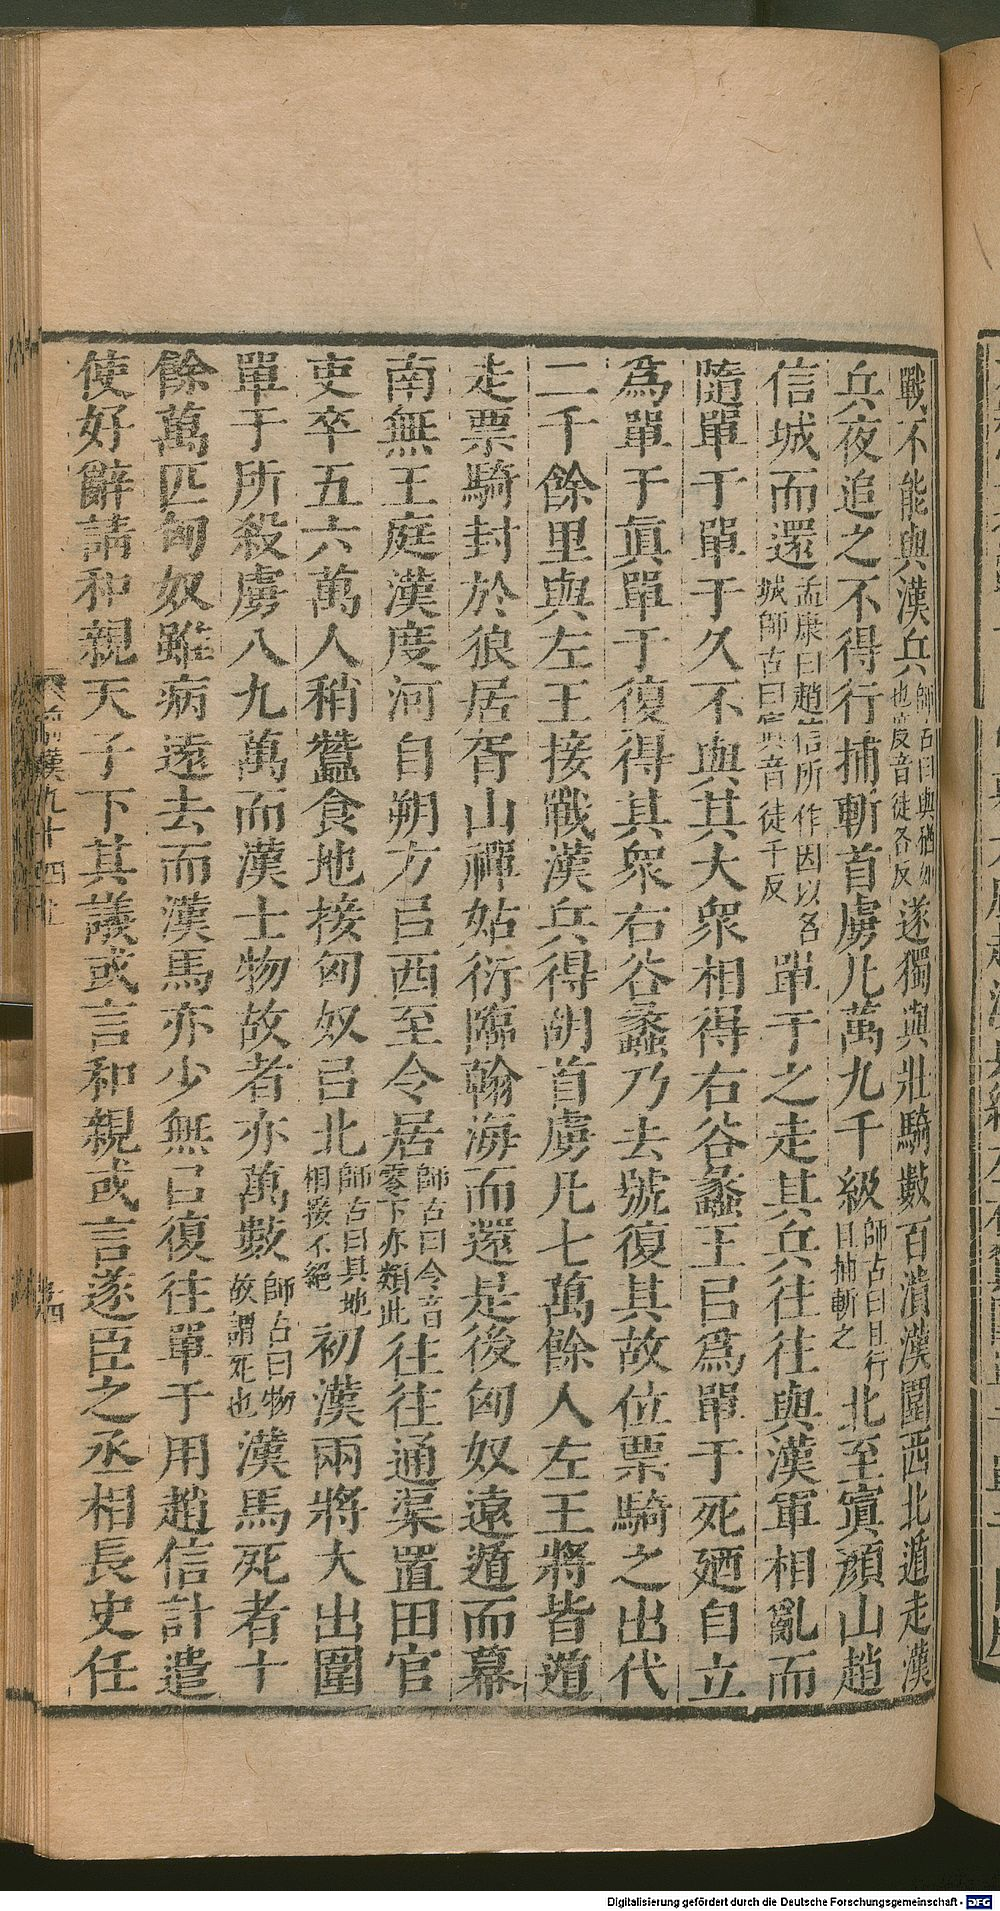 戰不能與漢兵師古曰與猶如也度音徒各反遂獨與壯騎數百潰漢圍西北遁走漢
兵夜追之不得行捕斬首虜凡萬九千級師古曰且行且捕斬之北至窴顏山趙
信城而還孟康曰趙信所作因以名城師古曰窴音徒千反單于之走其兵往往與漢軍相亂而
隨單于單于久不與其大眾相得右谷蠡王㠯爲單于死廼自立
爲單于眞單于復得其眾右谷蠡乃去號復其故位票騎之出代
二千餘里與左王接戰漢兵得胡首虜凡七萬餘人左王將皆遁
走票騎封於狼居胥山禪姑衍臨翰海而還是後匈奴遠遁而幕
南無王庭漢度河自朔方㠯西至令居師古曰令音零下亦類此往往通渠置田官
吏卒五六萬人稍蠶食地接匈奴㠯北師古曰其地相接不絕初漢兩將大出圍
單于所殺虜八九萬而漢士物故者亦萬數師古曰物故謂死也漢馬死者十
餘萬匹匈奴雖病遠去而漢馬亦少無㠯復往單于用趙信計遣
使好辭請和親天子下其議或言和親或言遂臣之丞相長史任
前漢九十四上
Digitalisierung gefördert durch die Deutsche Forschungsgemeinschaft - DFG